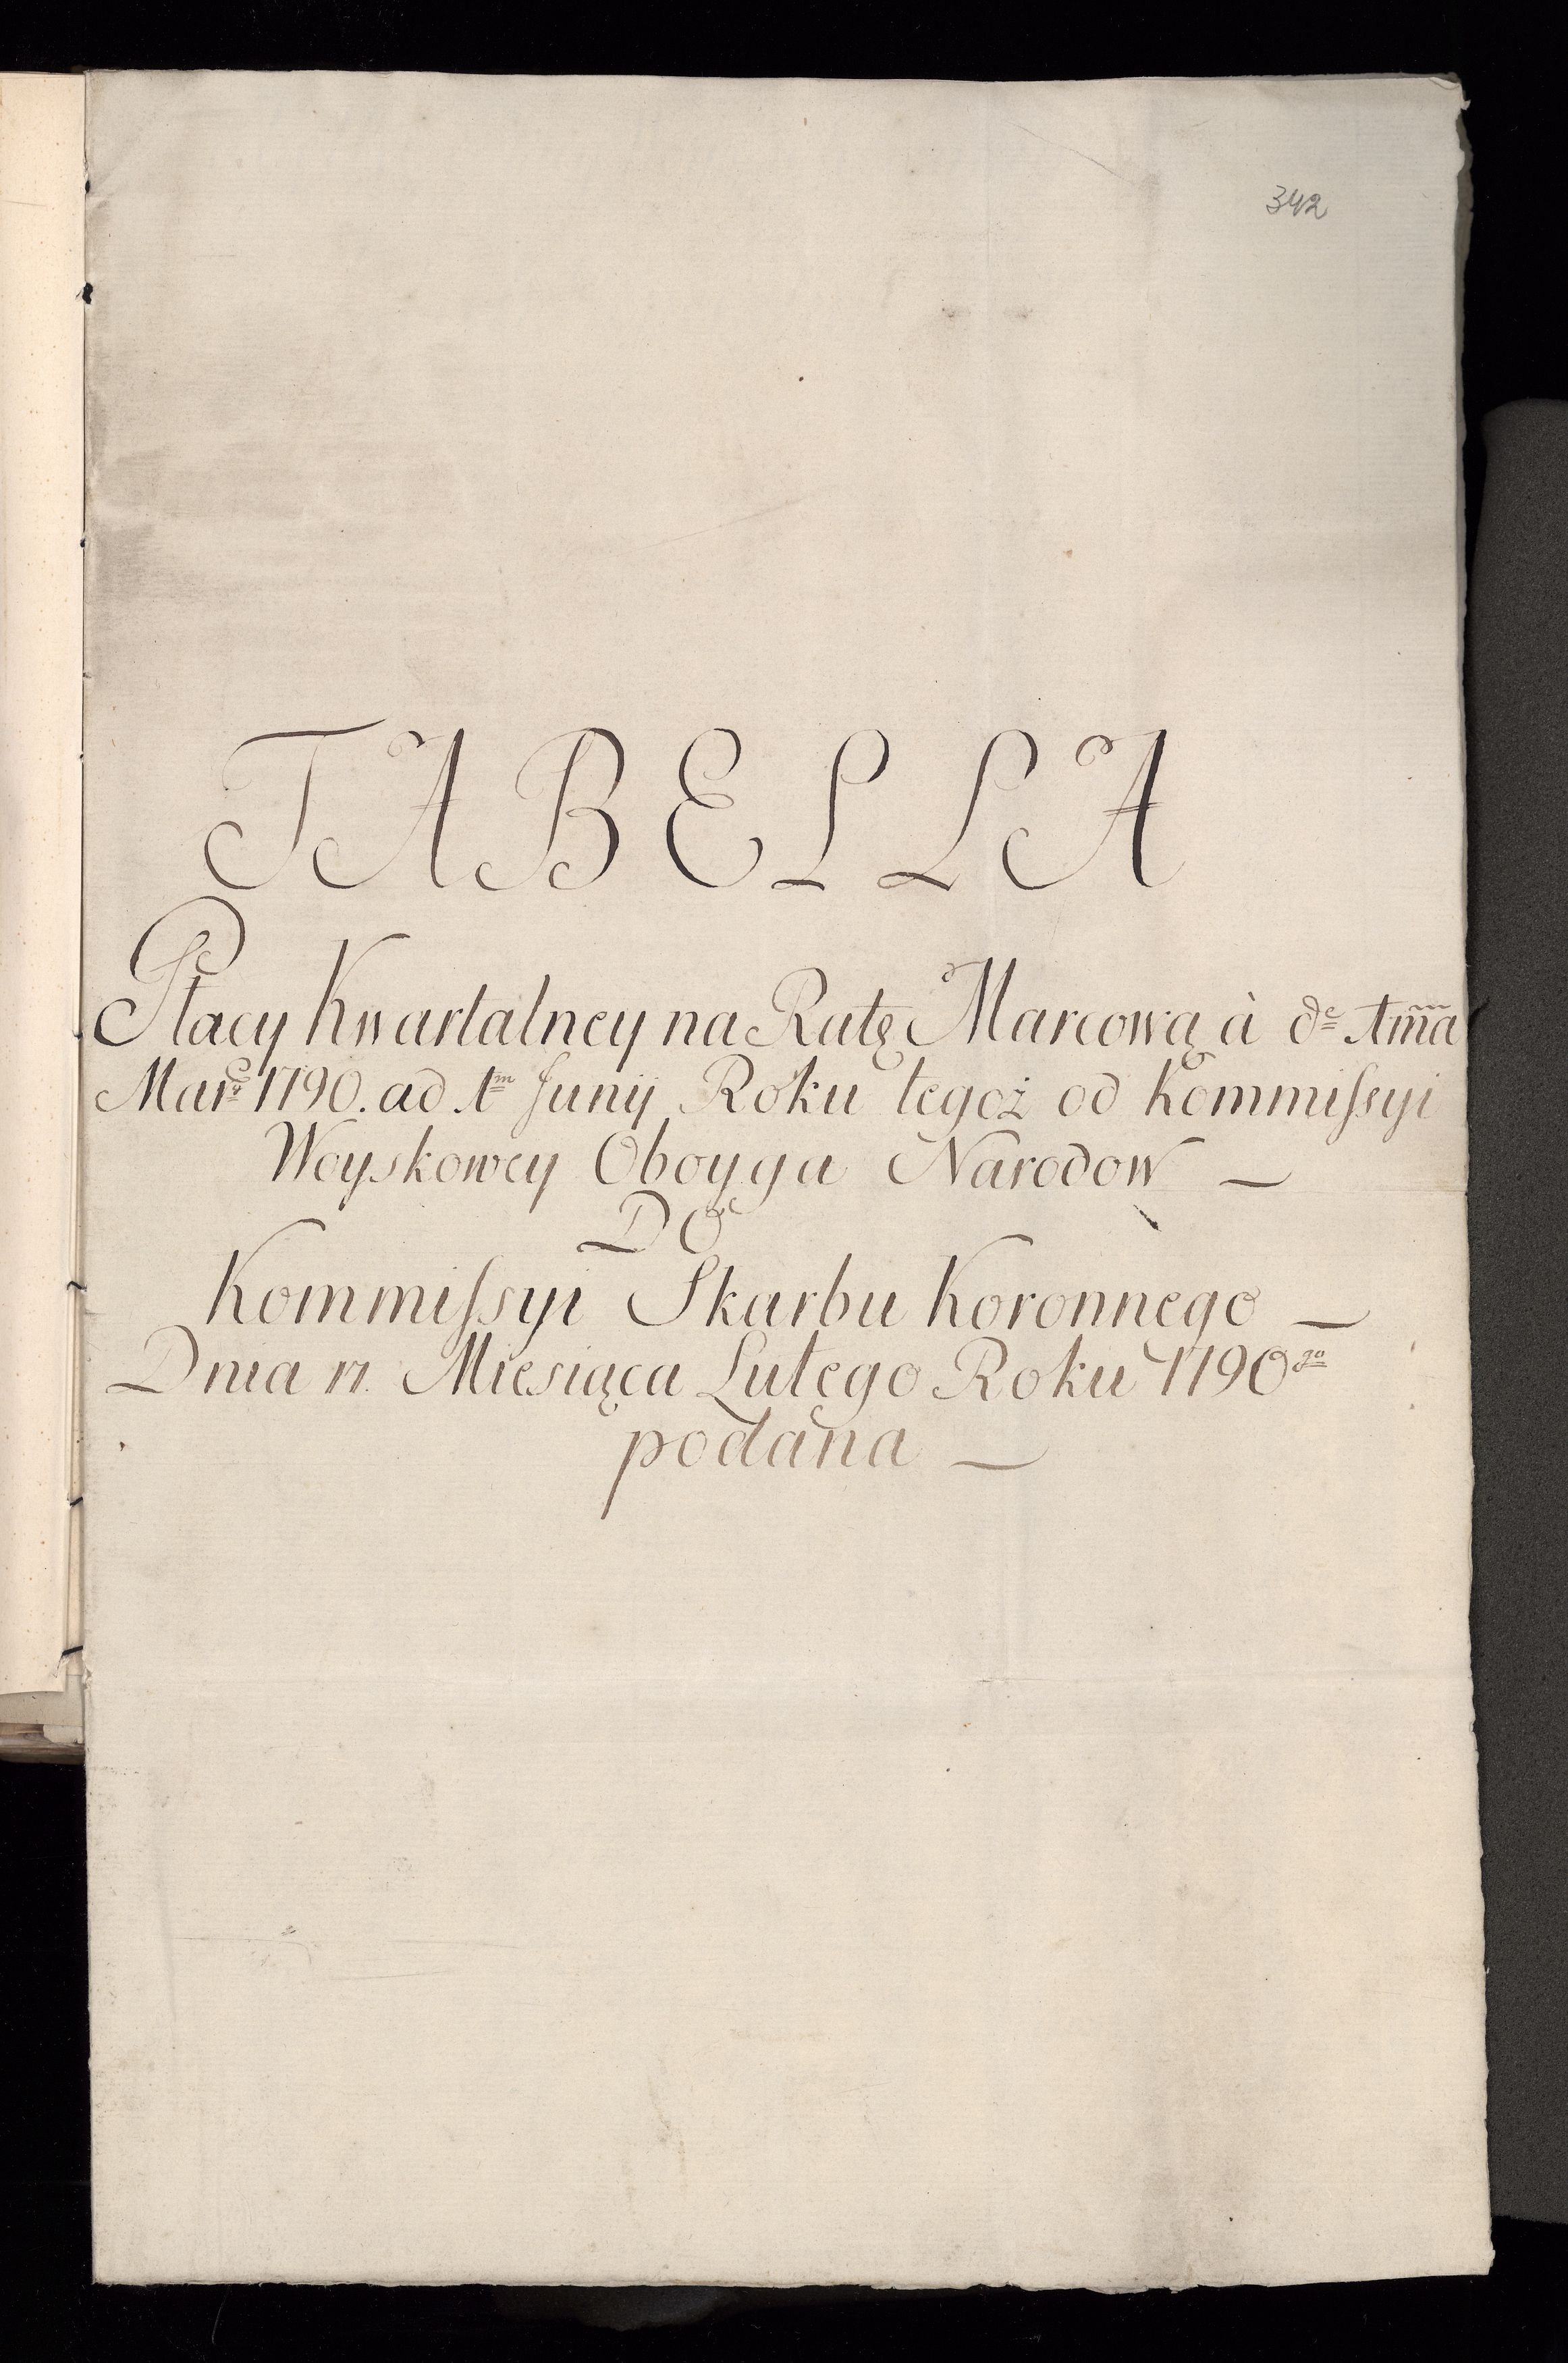 342
TABELLA
Płacy Kwartalney na Ratę Marcową à de 1ma
Mar. 1790. ad 1m Junij Roku tegoż od Kommiſsyi
Woyskowey Oboyga Narodow —
DO
Kommiſsyi Skarbu Koronnego —
Dnia 17. Miesiąca Lutego Roku 1790go
podana —